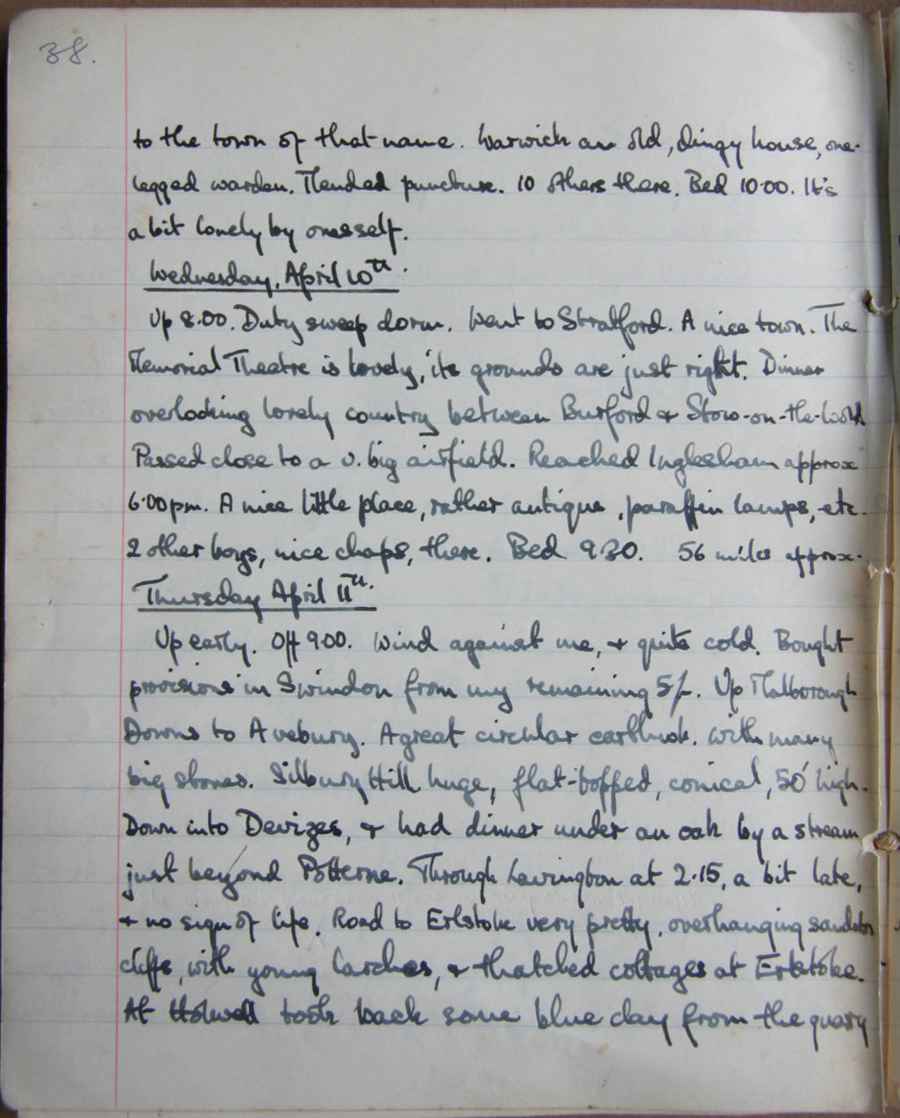 38.
to the town of that name. Warwick an old, dingy house, one-
legged warden. Mended puncture. 10 others there. Bed 10.00. It's
a bit lonely by oneself.
Wednesday, April 10th.
Up 8.00. Duty sweep dorm. Went to Stratford. A nice town. The
Memorial Theatre is lovely, its grounds are just right. Dinner
overlooking lovely country between Burford & Stow-on-the-Wold
Passed close to a v. big airfield. Reached Inglesham approx
6.00pm. A nice little place, rather antique, paraffin lamps, etc.
2 other boys, nice chaps, there. Bed 9.30. 56 miles approx.
Thursday April 11th.
Up early. Off 9.00. Wind against me, & quite cold. Bought
provisions in Swindon from my remaining 5/-. Up Malborough
Downs to Avebury. A great circular earthwk. with many
big stones. Silbury Hill huge, flat-topped, conical, 50' high.
Down into Devizes, & had dinner under an oak by a stream
just beyond Potterne. Through Lavington at 2.15, a bit late,
& no sign of life. Road to Erlstoke very pretty, overhanging
cliffs, with young larches, & thatched cottages at Erlstoke.
At took back some blue clay from the quary